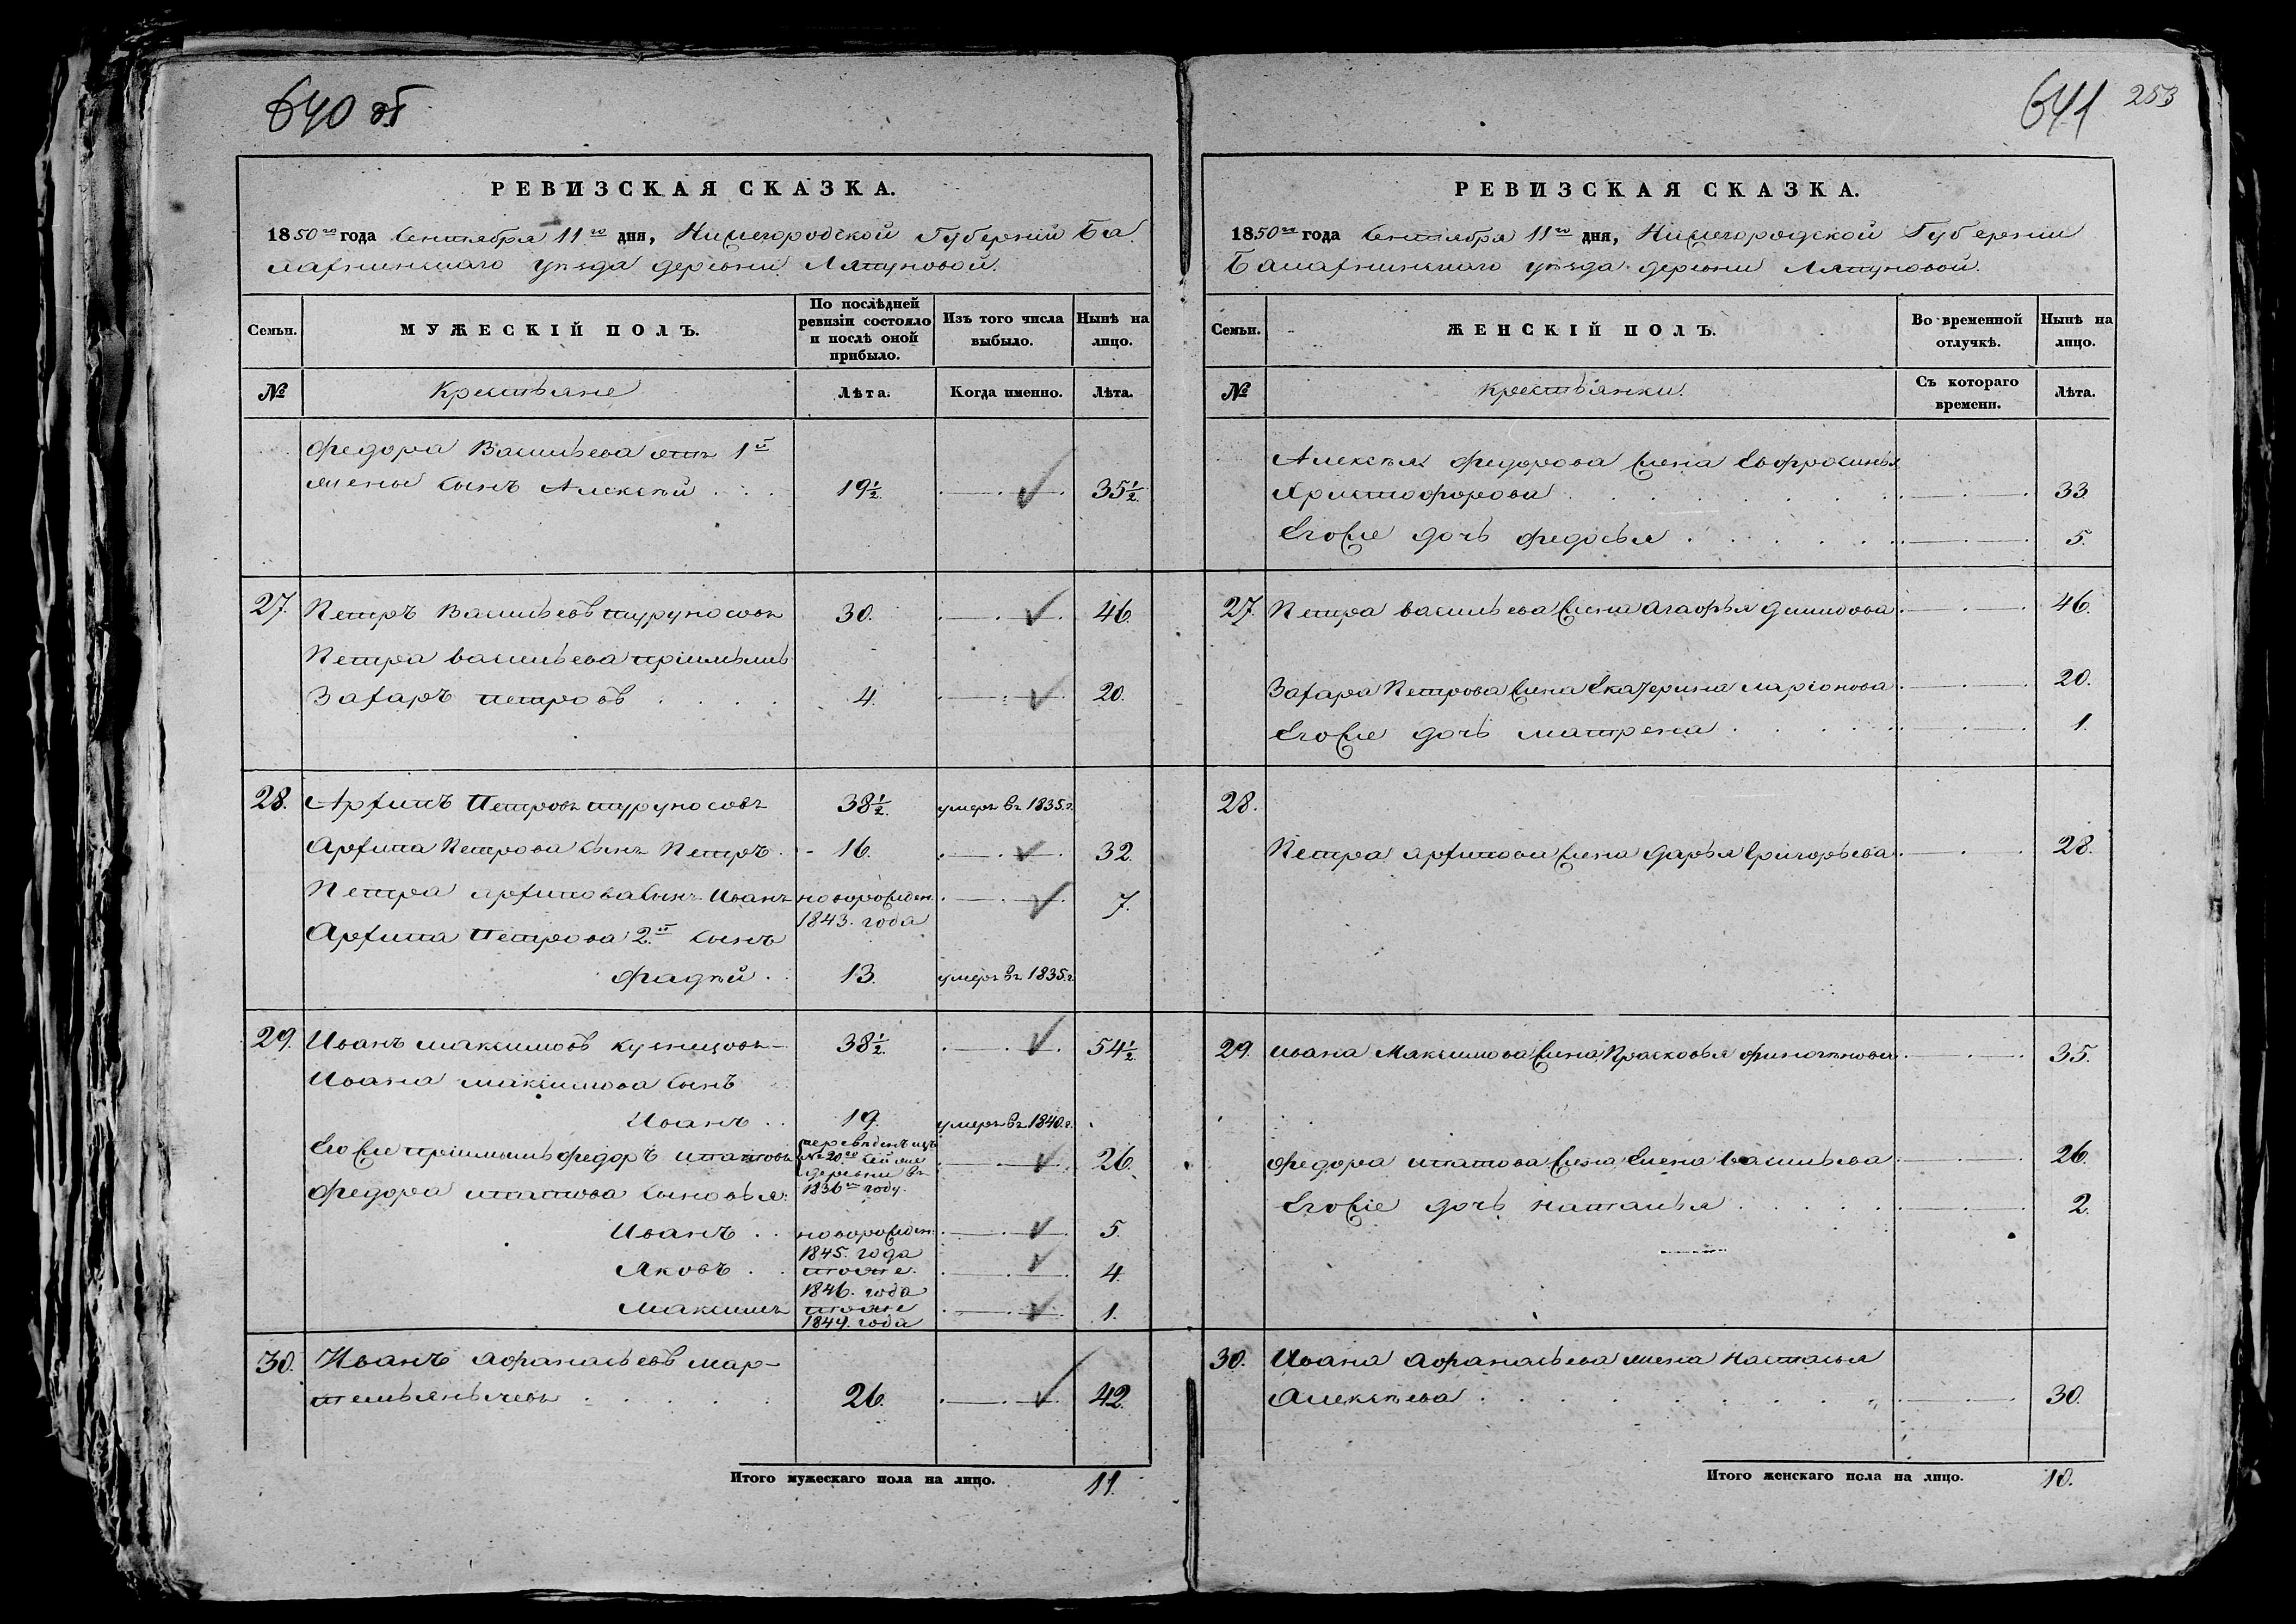 640 об
РЕВИЗСКАЯ СКАЗКА.
1850го года Сентября 11го дня, Нижегородской Губерніи Ба
лахнинскаго уѣзда деревни Ляпуновой.
Семьи.
МУЖЕСКІЙ ПОЛЪ.
По послѣдней ревизіи состояло и послѣ оной прибыло.
Изъ того числа выбыло.
Нынѣ на лицо.
№
Крестьяне
Лѣта.
Когда именно.
Лѣта.
Федора Васильева отъ 1й
жены Сынъ Алексѣй . . . 19½ 35½
27. Петръ Васильевъ туруносовъ 30. 46.
Петра васильева пріимышъ
Захаръ петровъ . . . . 4. 20.
28. Архипъ Петровъ туруносовъ 38½ умеръ въ 1835.г.
Архипа Петрова Сынъ Петръ. 16. 32.
Петра архипова Сынъ Иванъ новорожден. 7.
1843. года
Архипа Петрова 2й Сынъ
Фадѣй . 13. умеръ въ 1835.г.
29. Иванъ максимовъ кузнецовъ 38½ 54½
Ивана максимова Сынъ
Иванъ . . 19. умеръ въ 1840.г.
Его же пріимышъ Федоръ ипатовъ переведенъ изъ 26.
№ 20го сей же
деревни въ
1836м году.
Федора ипатова Сыновья:
Иванъ . . новорожден. 5.
1845. года
Яковъ . . тоже. 4.
1846. года
Максимъ тоже 1.
1849. года
30. Иванъ Афанасьевъ мар-
темьянычевъ . . . . . 26. 42.
Итого мужескаго пола на лицо. 11.
641 253
РЕВИЗСКАЯ СКАЗКА.
1850го года Сентября 11го дня, Нижегородской Губерніи
Балахнинскаго уѣзда деревни Ляпуновой.
Семьи.
ЖЕНСКІЙ ПОЛЪ.
Во временной отлучкѣ.
Нынѣ на лицо.
№
Крестьянки.
Съ котораго времени.
Лѣта.
Алексѣя Федорова жена Евфросинья
Христофорова . . . . . . 33.
Его же дочь Федосья . . . . . 5.
27. Петра васильева жена Агафья Филипова 46.
Захара Петрова жена Екатерина ларіонова 20.
Его же дочь матрена . . . . 1.
28.
Петра архипова жена дарья Григорьева 28.
29. Ивана Максимова жена Прасковья финогенова 35.
Федора ипатова жена Елена васильева 26.
Его же дочь наталья . . . . . 2.
30. Ивана Афанасьева жена Настасья
Алексѣева . . . . . . . . 30.
Итого женскаго пола на лицо. 10.